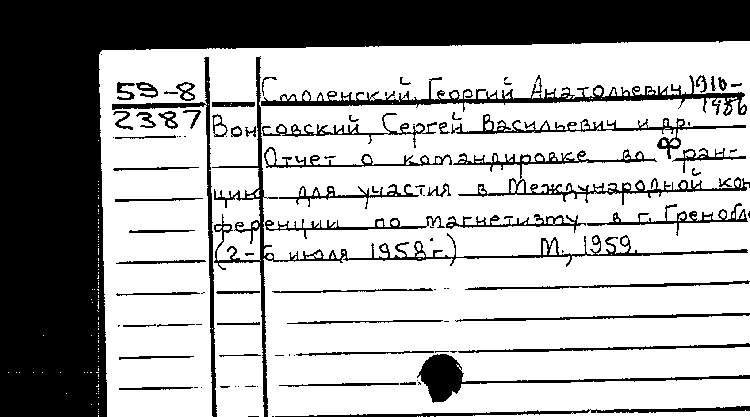 59-8 Смоленский, Георгий Анатольевич, 1910-
1986
2387 Вонсовский, Сергей Васильевич и др.
Отчет о командировке во Фран-
цию для участия в Международной кон
ференции по магнетизму в г. Гренобл
(2-6 июля 1958 г.) М., 1959.